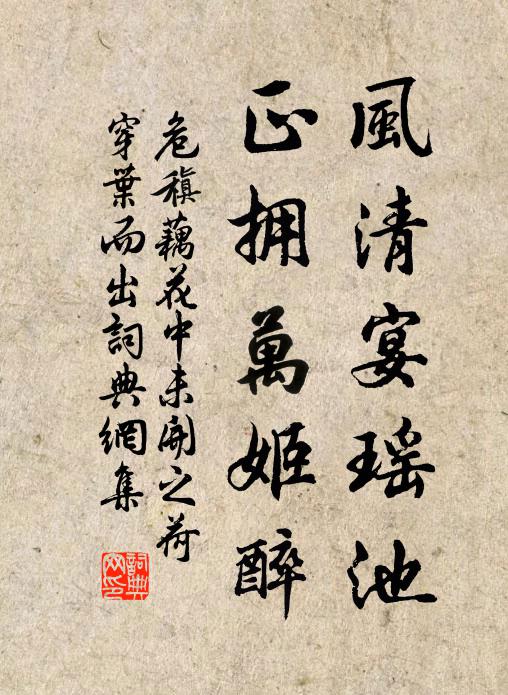 風清宴瑶池
正拥萬姬醉
危稹藕花中未開之荷
穿葉而出詞典網集
詞典
网印